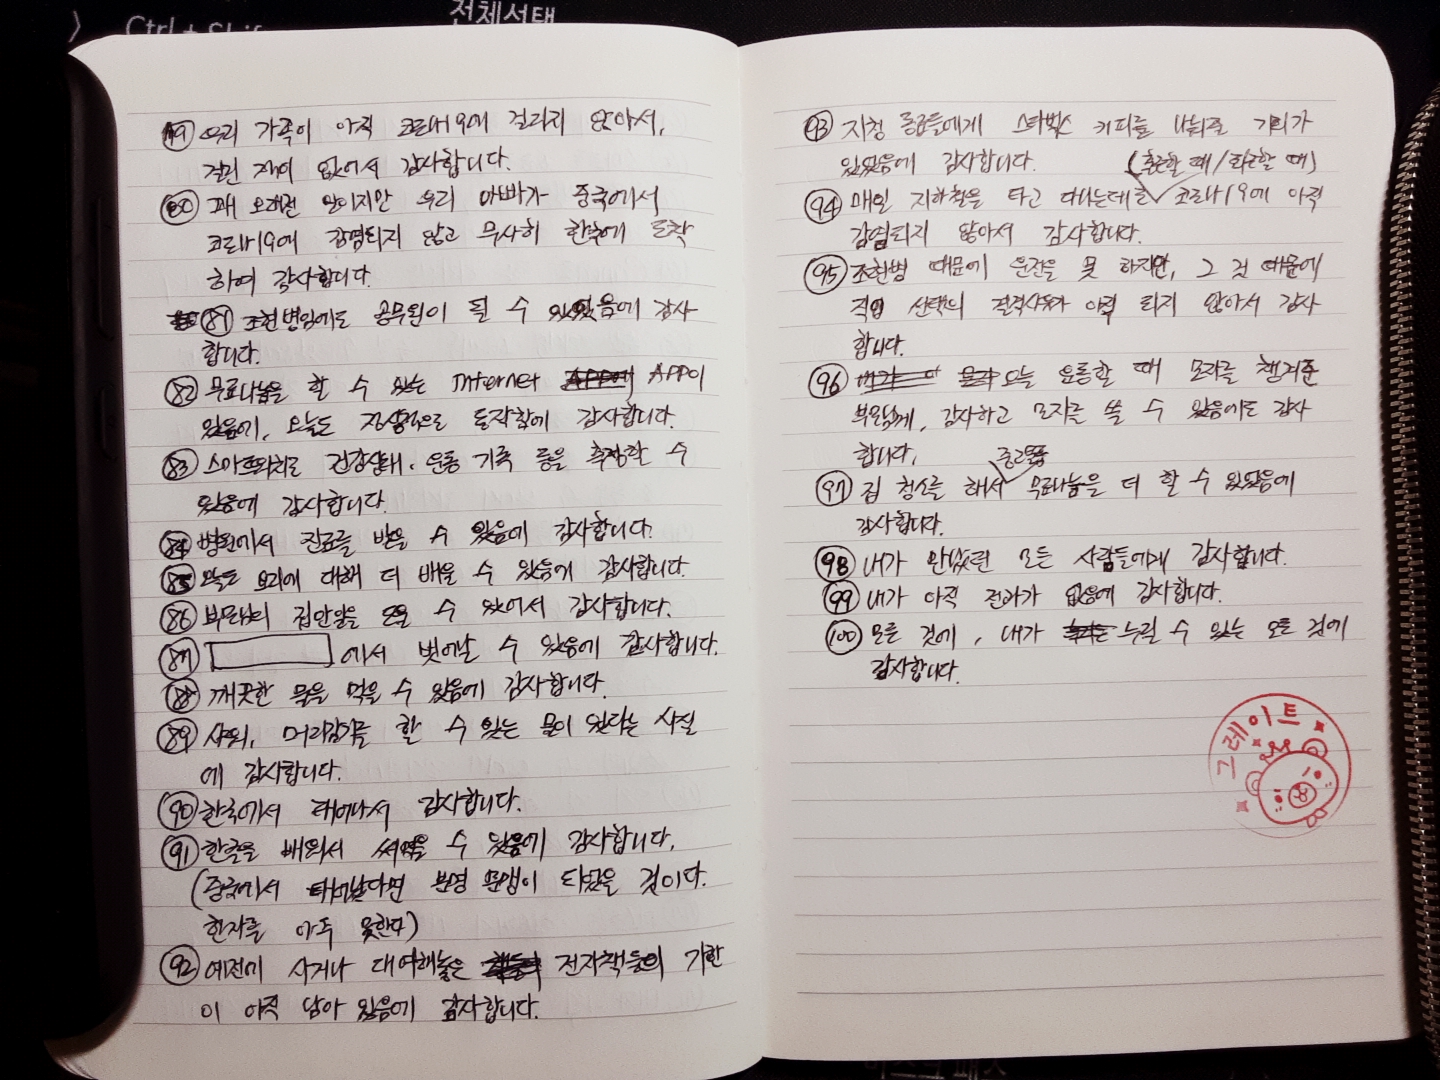 전체선택
Ctrl + Shift
79 우리 가족이 아직 코로나19에 걸리지 않아서,
걸린 적이 없어서 감사합니다.
80 꽤 오래전 일이지만 우리 아빠가 중국에서
코로나19에 감염되지 않고 무사히 한국에 도착
하여 감사합니다.
81 조현병임에도 공무원이 될 수 있었음에 감사
합니다.
82 무료나눔을 할 수 있는 Internet APP이
있음에, 오늘도 정상적으로 동작함에 감사합니다.
83 스마트워치로 건강상태·운동 기록 등을 측정할 수
있음에 감사합니다.
84 병원에서 진료를 받을 수 있음에 감사합니다.
85 오늘도 요리에 대해 더 배울 수 있음에 감사합니다.
86 부모님의 집안일을 도울 수 있어서 감사합니다.
87 에서 벗어날 수 있음에 감사합니다.
88 깨끗한 물을 먹을 수 있음에 감사합니다.
89 샤워, 머리감기를 할 수 있는 물이 있다는 사실
에 감사합니다.
90 한국에서 태어나서 감사합니다.
91 한글을 배워서 써먹을 수 있음에 감사합니다.
(중국에서 태어났다면 분명 문맹이 되었을 것이다.
한자를 아주 못한다)
92 예전에 사거나 대여해놓은 전자책들의 기한
이 아직 남아 있음에 감사합니다.
93 지청 동료들에게 스타벅스 커피를 나눠줄 기회가
있었음에 감사합니다.
(출근할 때/퇴근할 때)
94 매일 지하철을 타고 다니는데도 코로나19에 아직
감염되지 않아서 감사합니다.
95 조현병 때문에 운전을 못 하지만, 그 것 때문에
직업 선택의 결격사유가 아직 되지 않아서 감사
합니다.
96 오늘 운동할 때 모자를 챙겨준
부모님께, 감사하고 모자를 쓸 수 있음에도 감사
합니다.
97 집 청소를 해서 무료나눔을 더 할 수 있었음에
감사합니다.
98 내가 만났던 모든 사람들에게 감사합니다.
99 내가 아직 전과가 없음에 감사합니다.
100 모든 것에, 내가 누릴 수 있는 모든 것에
감사합니다.
그레이트